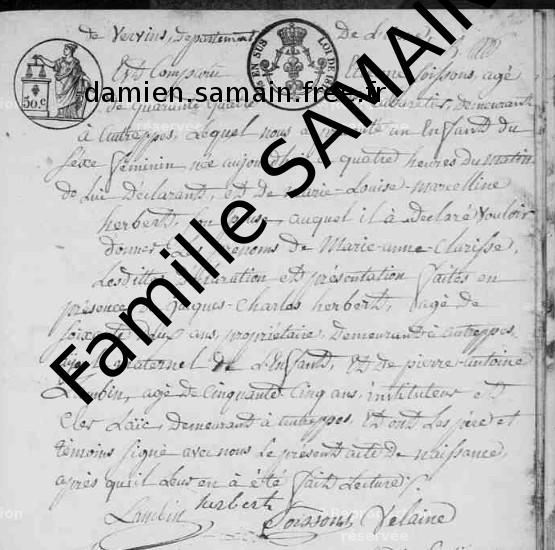 de Vervins, Departement de L'
50.c
EN SUS
LOI DE
Est Comparu Etienne Soissons, agé
damien.samain.free.fr
de quarante quatre Cabaretier, demeurant
à autreppes, Lequel nous a presenté un Enfant du
Sexe féminin née aujourd'hui à quatre heures du matin
de Lui Déclarant, Et de Marie-Louise-marcelline
herbert, son Epouse, auquel il à Déclaré Vouloir
donner Les prenoms de Marie-anne-Clarisse.
Lesdittes déclaration et présentation faites en
présence de Jacques-Charles herbert, agé de
soixante deux ans, propriétaire, Demeurant à autreppes,
ayeul paternel De L'Enfant, Et de pierre-Antoine
Lambin, agé de Cinquante Cinq ans, instituteur Et
Clerc Laïc, demeurant à autreppes, Et ont Les père et
témoins signé avec nous Le présent acte de naissance,
après qu'il Leur en à été fait Lecture.
Lambin herbert Soissons Velaine
Famille SAMAIN
Reproduction
réservée